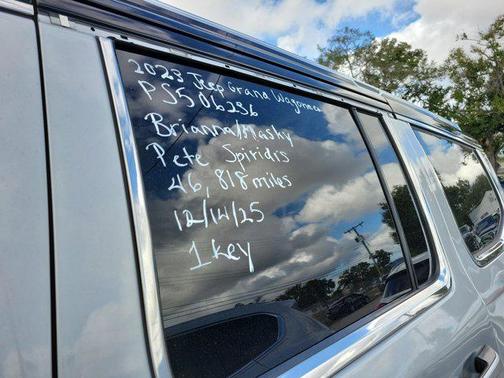 2023 Jeep Grand Wagoneer
PS506236
Brianna/Masky
Pete Spiridrs
46,818 miles
12/14/25
1 Key